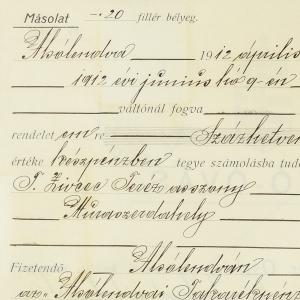 Másolat —·20 fillér bélyeg.
Alsólendva 1912 április
1912 évi junius hó 9-én
váltónál fogva
rendelet em re Százhetven
értéke készpénzben tegye számolásba tud
T. Zivcec Teréz asszony
Muraszerdahely
Fizetendő Alsólendván
az Alsólendvai Takarékpénz